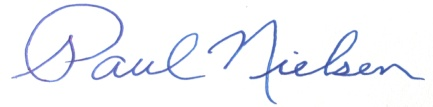 Paul Nielsen